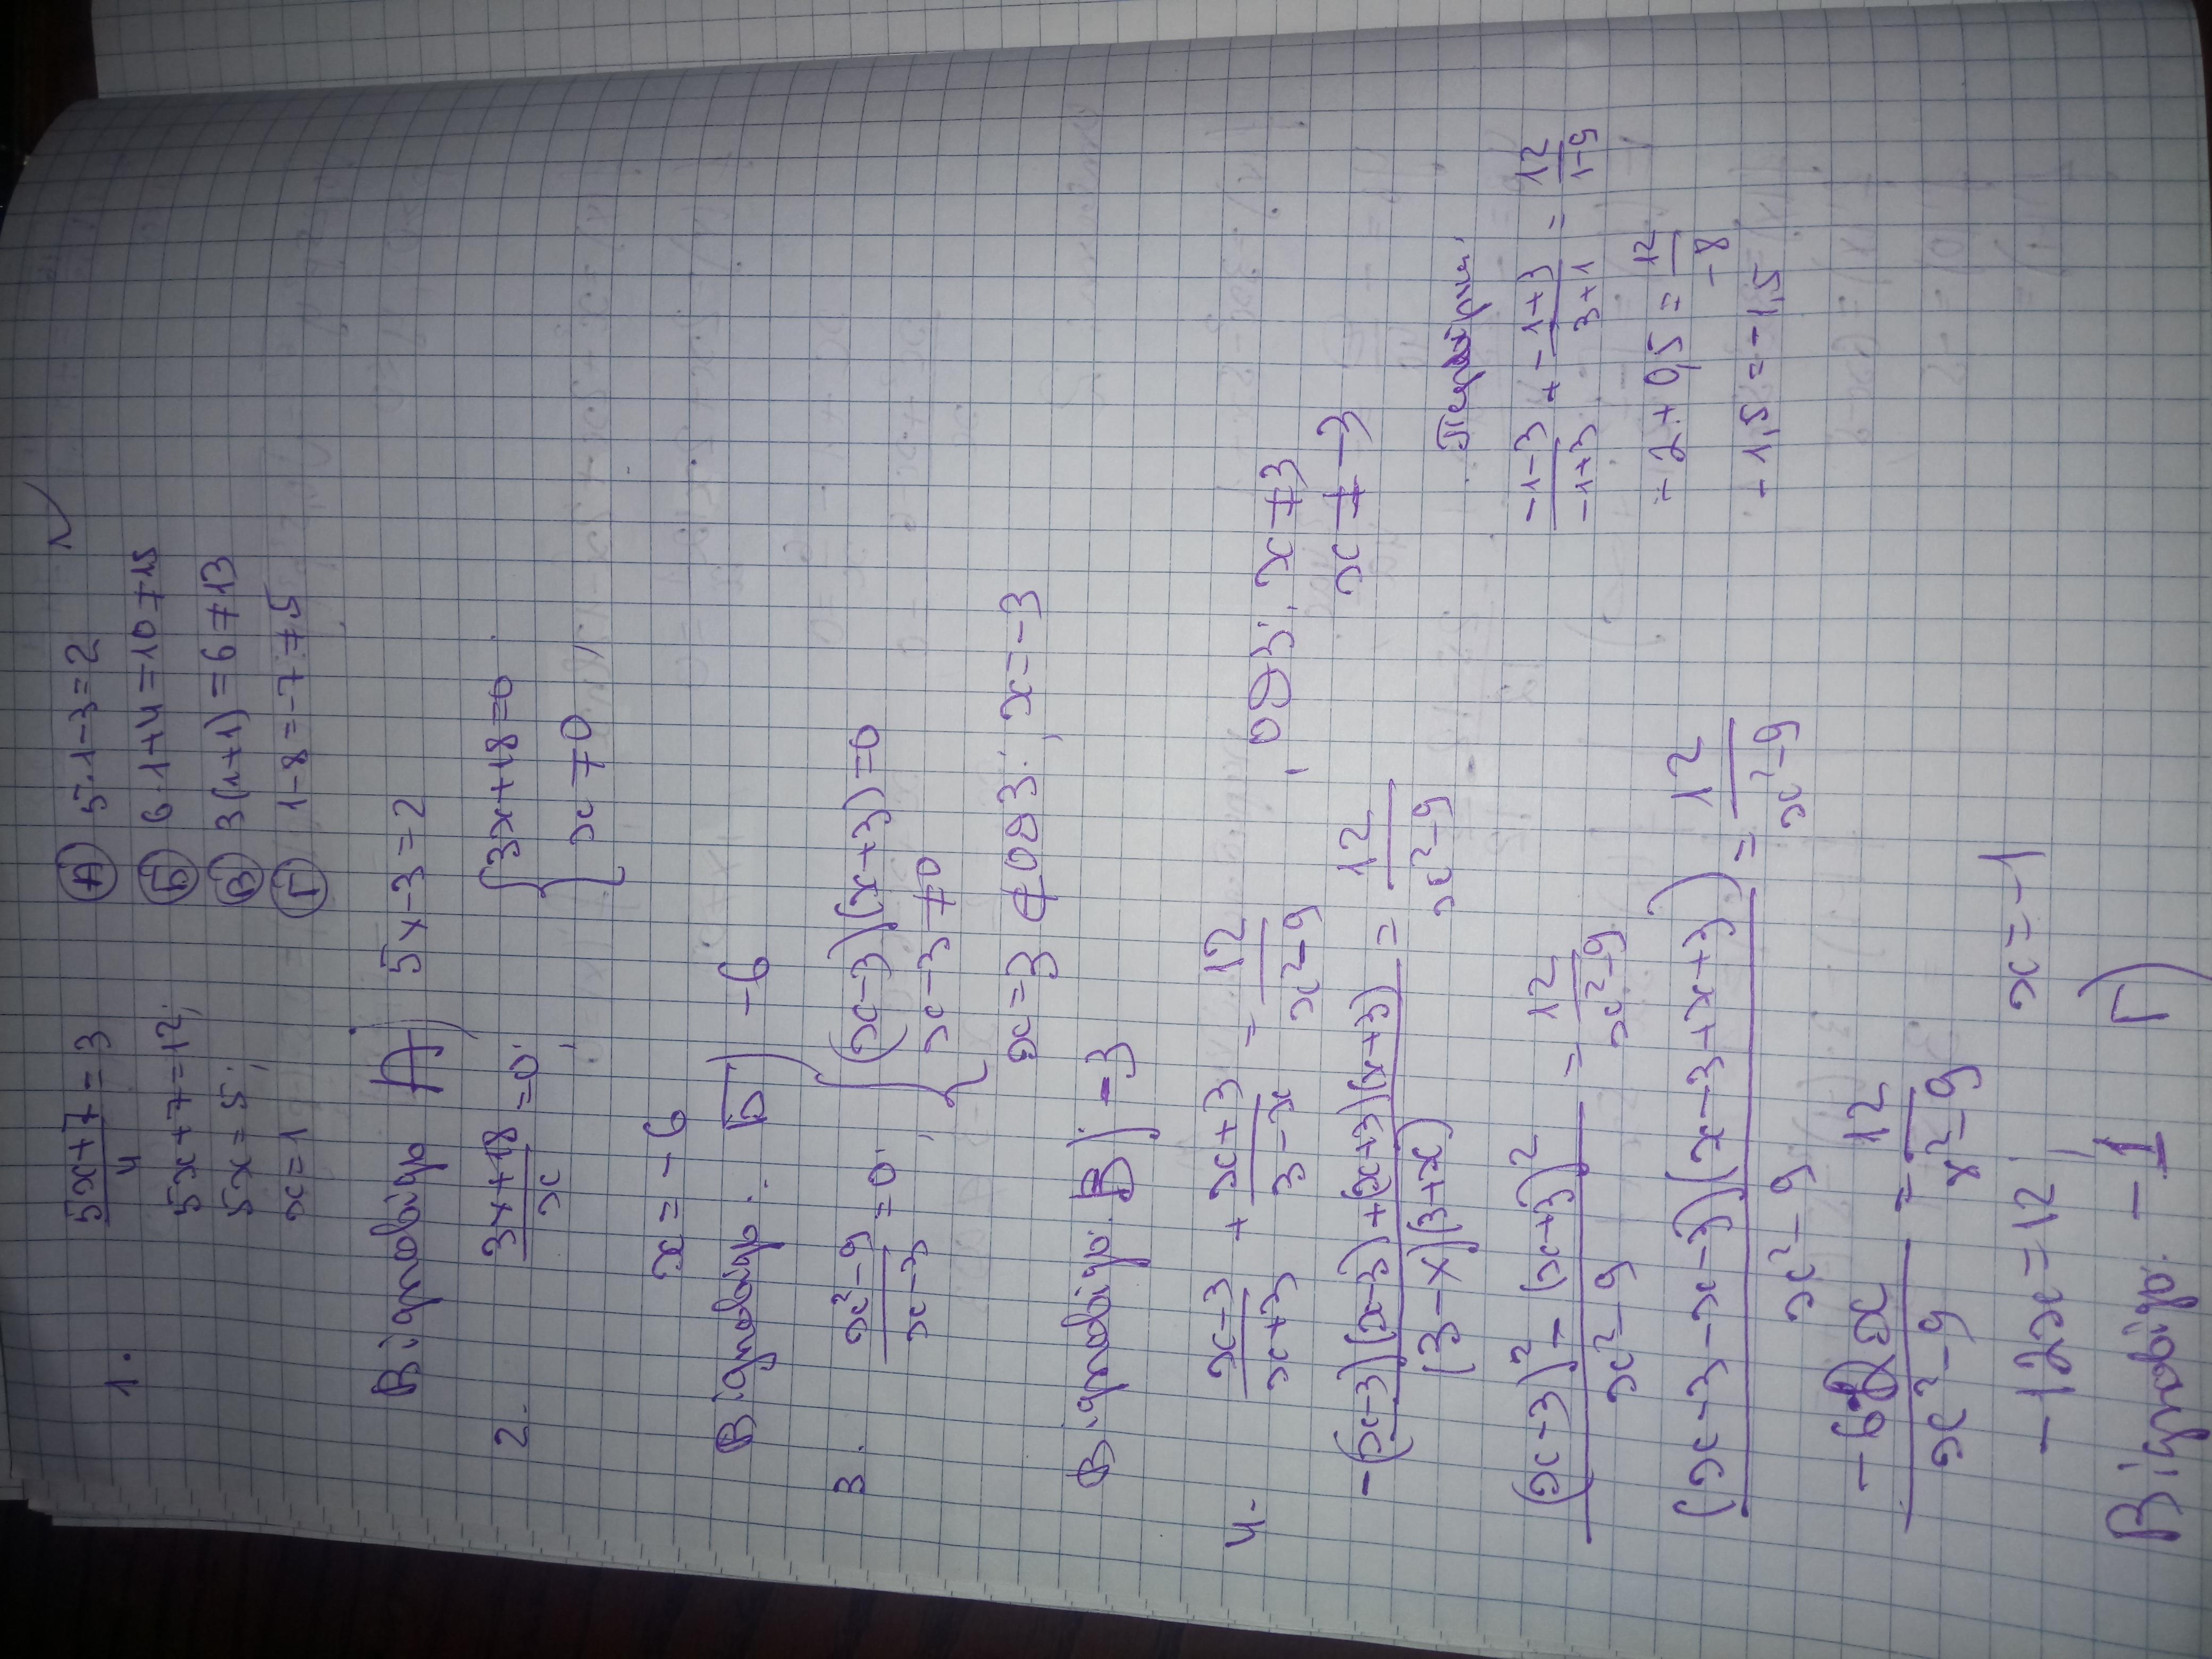 1. (5x+7)/4 = 3
5x+7=12;
5x=5;
x=1
А) 5·1-3=2 ✓
Б) 6·1+4=10≠15
В) 3(1+1)=6≠13
Г) 1-8=-7≠5
Відповідь А) 5x-3=2
2. (3x+18)/x =0; {3x+18=0
x≠0
x=-6
Відповідь: Б) -6
3. (x²-9)/(x-3) =0; {(x-3)(x+3)=0
x-3≠0
x=3 ∉ ОДЗ; x=-3
Відповідь. В) -3
4. (x-3)/(x+3) + (x+3)/(3-x) = 12/(x²-9); ОДЗ: x≠3
x≠-3
(-(x-3)(x-3)+(x+3)(x+3))/((3-x)(3+x)) = 12/(x²-9)
((x-3)²-(x+3)²)/(x²-9) = 12/(x²-9)
((x-3-x-3)(x-3+x+3))/(x²-9) = 12/(x²-9)
(-6·2x)/(x²-9) = 12/(x²-9)
-12x=12; x=-1
Відповідь. -1 Г)
(-1-3)/(-1+3) + (-1+3)/(3+1) = 12/(1-9)
-2+0,5=12/-8
-1,5=-1,5